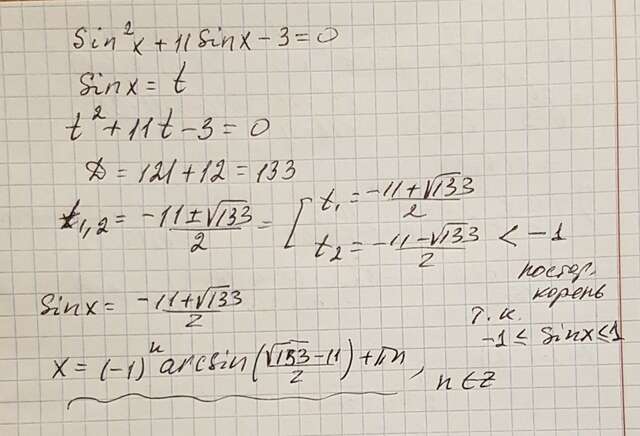 sin²x + 11 sinx - 3 = 0
sinx = t
t² + 11t - 3 = 0
D = 121 + 12 = 133
t₁,₂ = (-11 ± √133)/2 = [ t₁ = (-11 + √133)/2
t₂ = (-11 - √133)/2 < -1
постор.
корень
т.к.
-1 ≤ sinx ≤ 1
sinx = (-11 + √133)/2
x = (-1)ⁿ arcsin((√133 - 11)/2) + πn, n ∈ Z